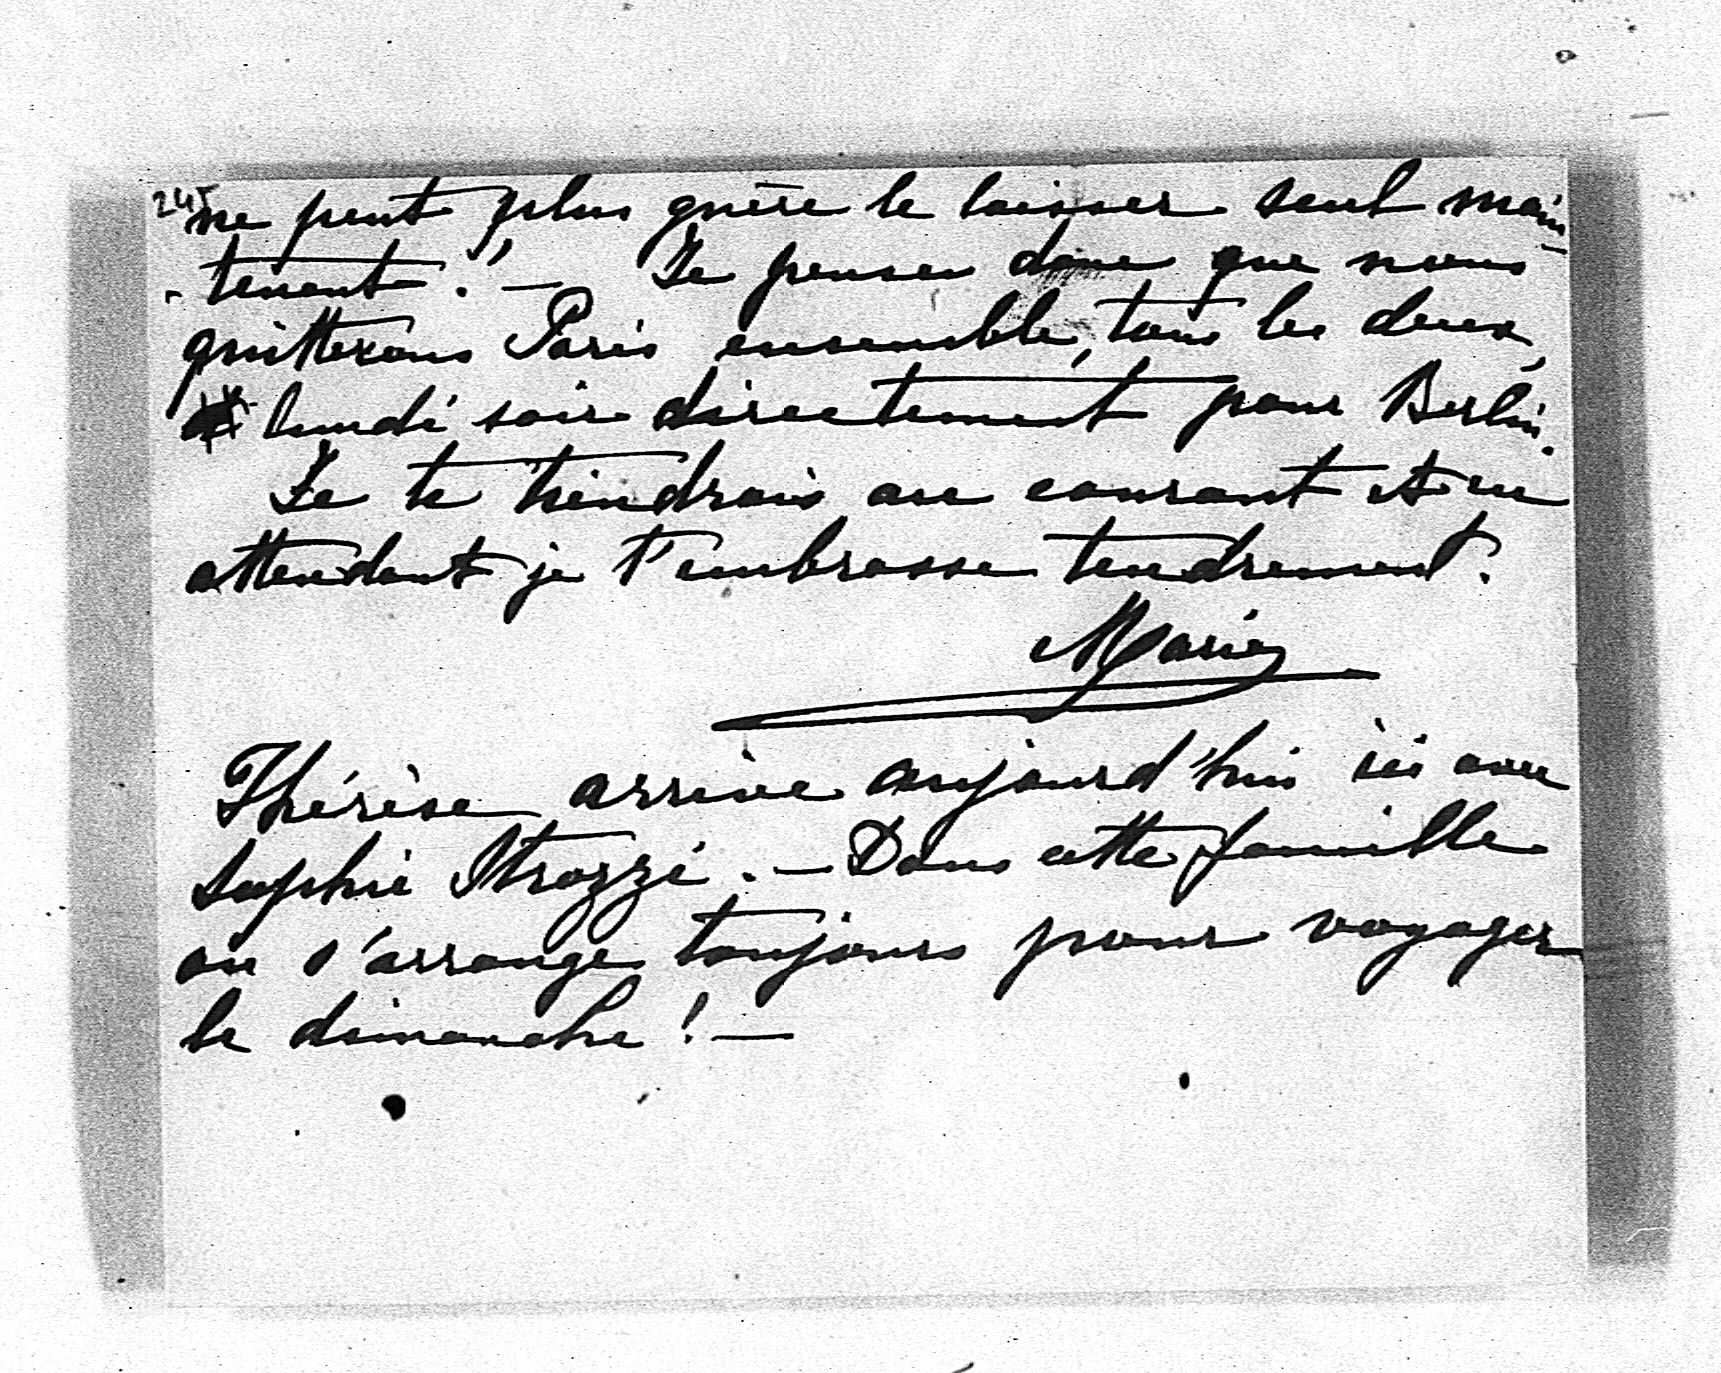 245
ne peut plus guère le laisser seul main
- tenant.! — Je pense donc que nous
quitterons Paris ensemble, tous les deux,
lundi soir directement pour Berlin.
Je te tiendrais au courant et en
attendant je t'embrasse tendrement.
Marie
Thérèse arrive aujourd'hui ici avec
Sophie Strozzi. — Dans cette famille
on s'arrange toujours pour voyager
le dimanche! —